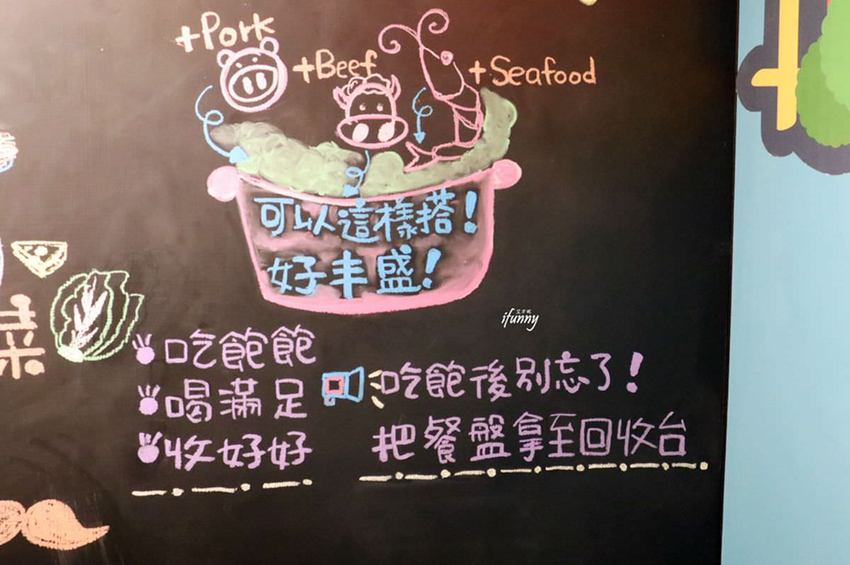 +Pork
+Beef
+Seafood
可以這樣搭!
好丰盛!
ifunny
菜
吃飽飽
喝滿足
收好好
吃飽後別忘了!
把餐盤拿至回收台